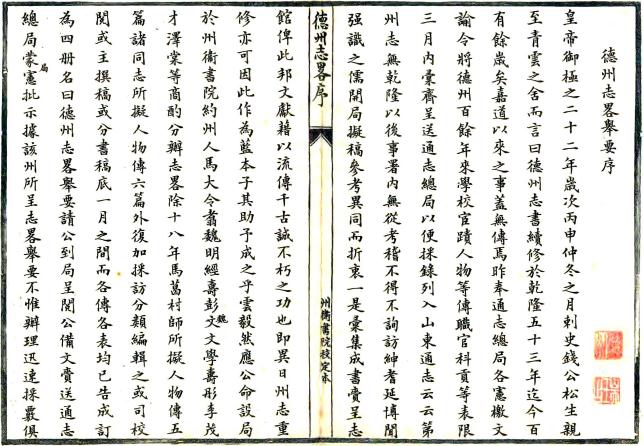 德州志畧舉要序
皇帝御極之二十二年歲次丙申仲冬之月刺史錢公松生親
至青雲之舍而言曰德州志書續修於乾隆五十三年迄今百
有餘歲矣嘉道以來之事蓋無傳焉昨奉通志總局各憲檄文
諭令將德州百餘年來學校宦蹟人物等傳職官科貢等表限
三月內彙齊呈送通志總局以便採錄列入山東通志云云第
州志無乾隆以後事署內無從考稽不得不詢訪紳耆延博聞
强識之儒開局擬稿參考異同而折衷一是彙集成書賫呈志
德州志畧序
州衛書院校定本
館俾此邦文獻藉以流傳千古誠不朽之功也即異日州志重
修亦可因此作為藍本子其助予成之乎雲毅然應公命設局
於州衛書院約州人馬大令翥魏明經壽彭文魏文學壽彤李茂
才澤棠等商酌分辦志畧除十八年馬葛村師所擬人物傳五
篇諸同志所擬人物傳六篇外復加採訪分類編輯之或司校
閱或主撰稿或分書稿底一月之間而各傳各表均已告成訂
為四册名曰德州志畧舉要請公到局呈閱公備文賫送通志
總局蒙局憲批示據該州所呈志畧舉要不惟辦理迅速採覈俱